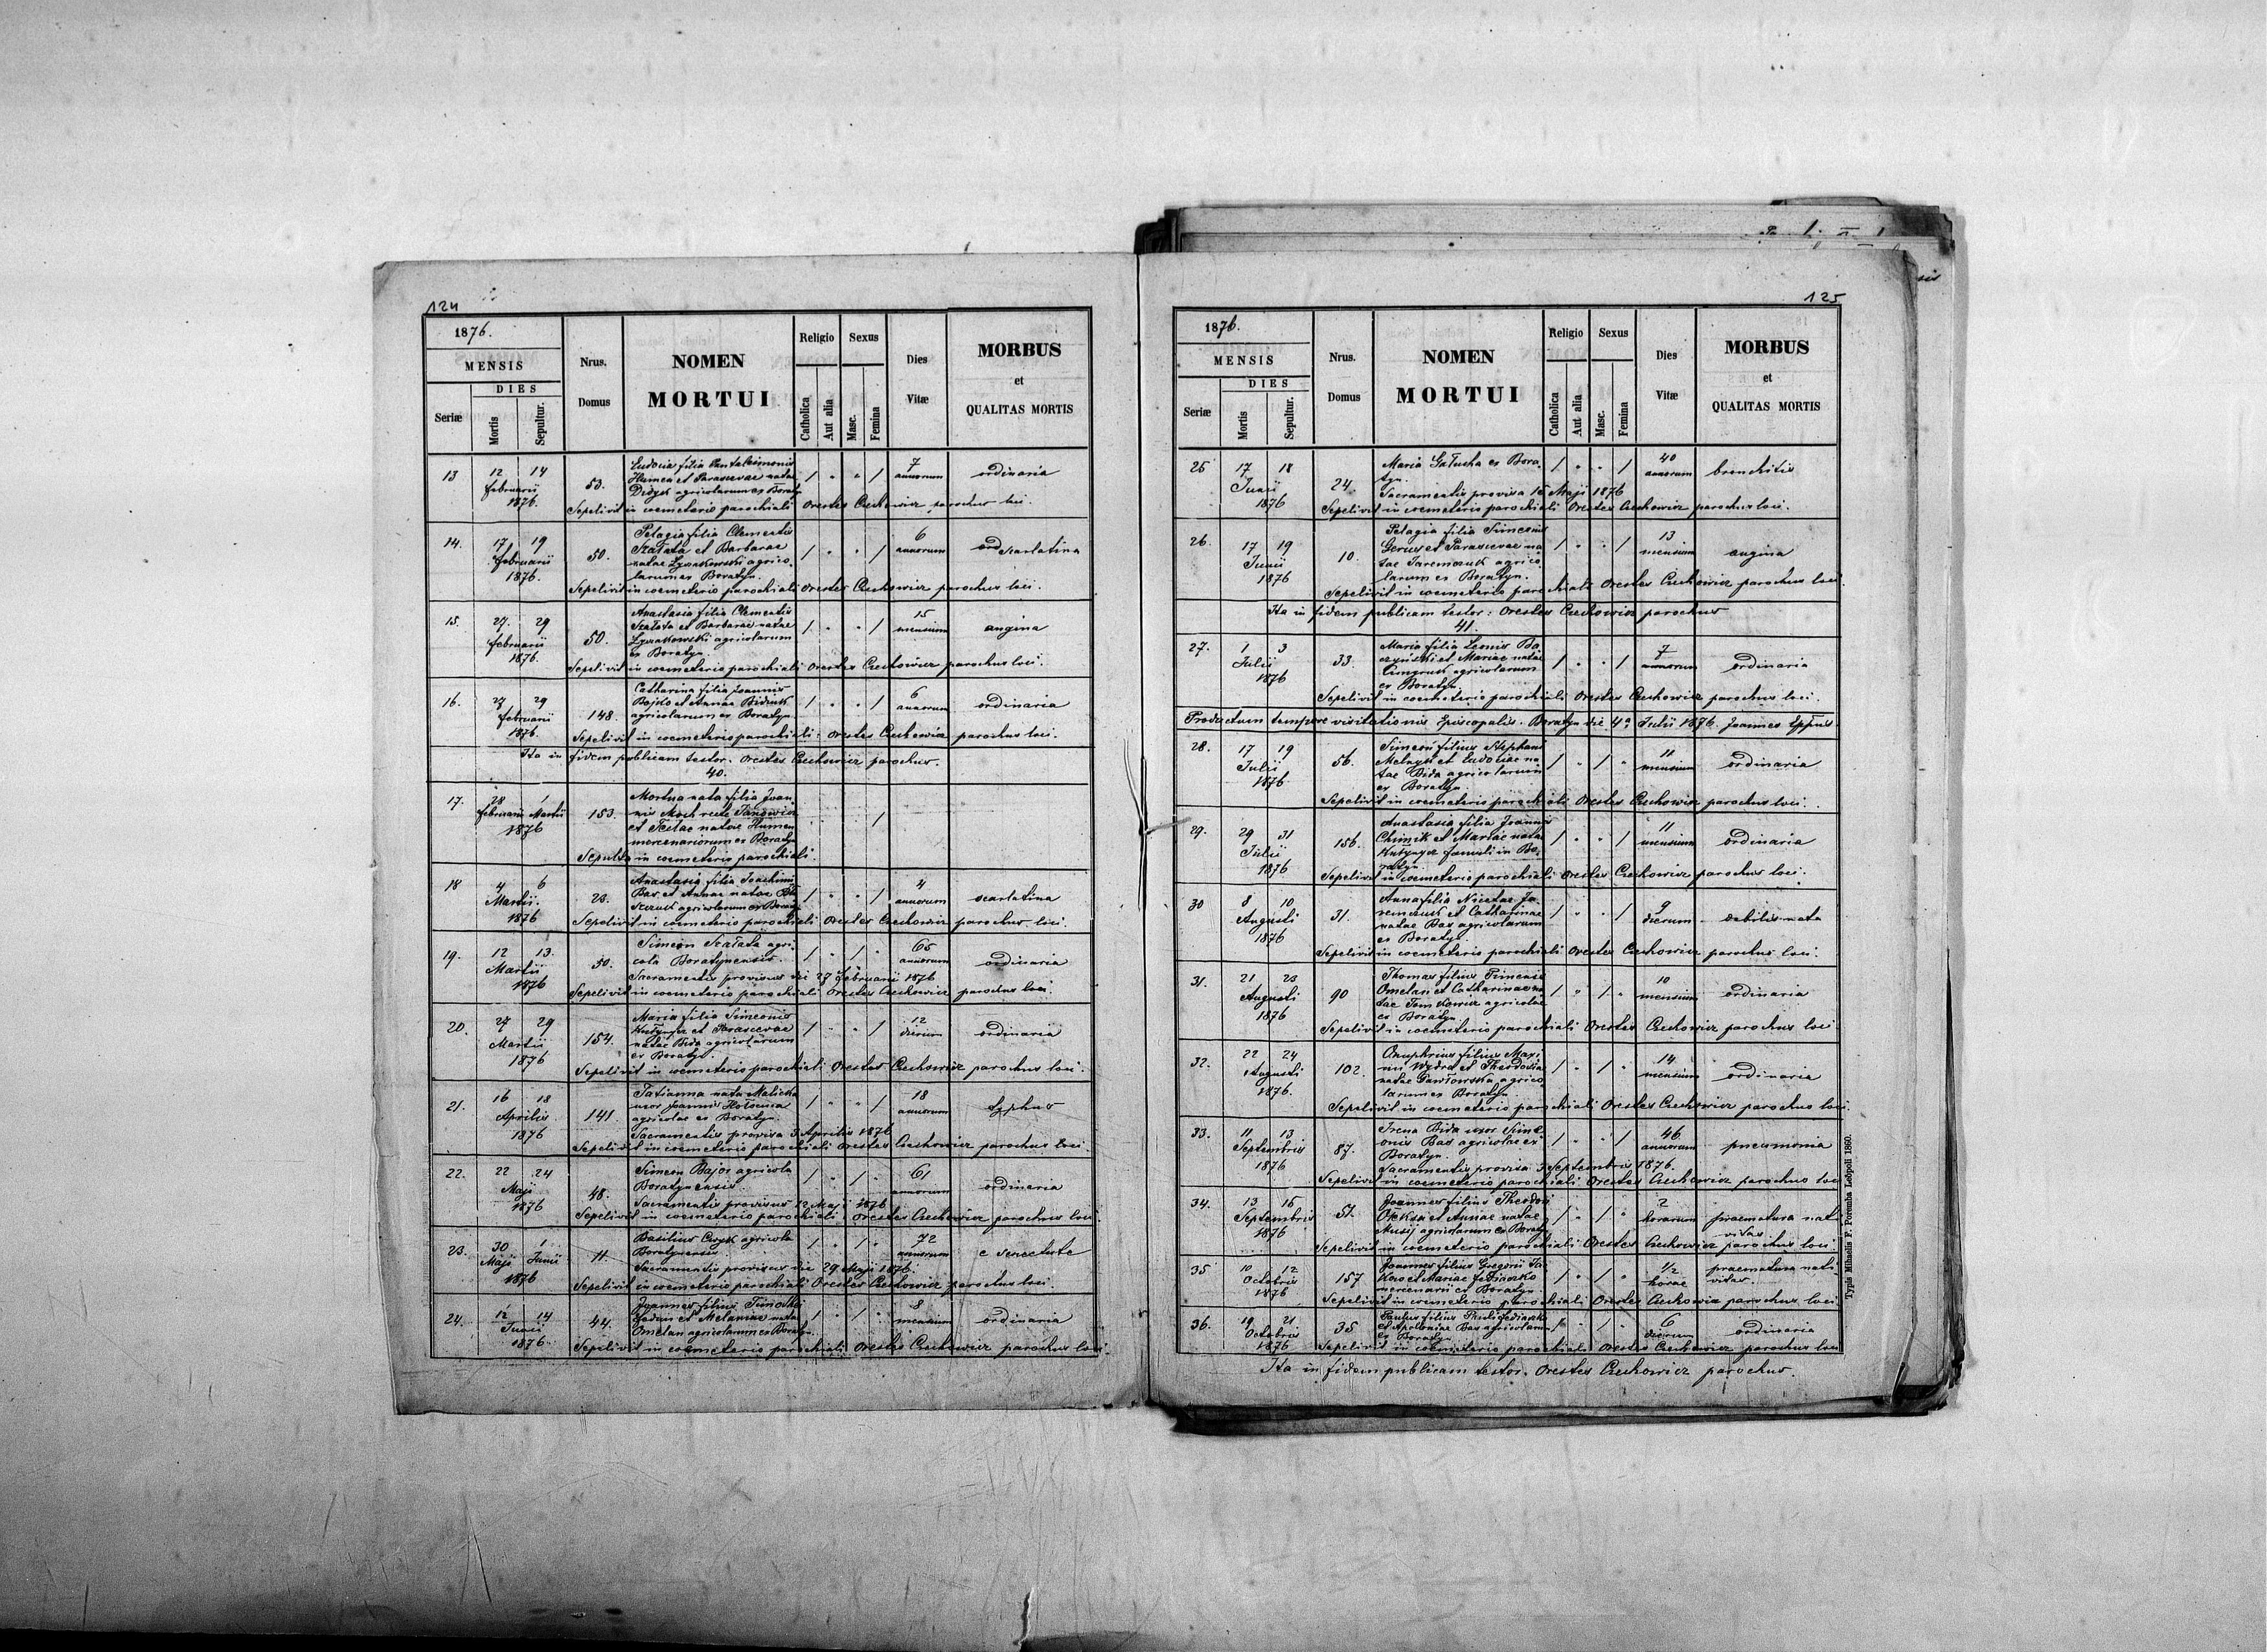 124
1876.
MENSIS
DIES
Seriæ
Mortis
Sepultur.
Nrus.
Domus
NOMEN
MORTUI
Religio
Catholica
Aut alia
Sexus
Masc.
Femina
Dies
Vitæ
MORBUS
et
QUALITAS MORTIS
13 12 14 Februarii 1876. 53. Eudocia filia Pantaleimonis 7 annorum ordinaria
Humen et Parascevae natae
Didyk agricolarum ex Boratyn
Sepelivit in coemeterio parochiali Orestes Czechowicz parochus loci.
14. 17 19 Februarii 1876. 50. Pelagia filia Clementis 6 annorum scarlatina
Szałata et Barbarae
natae Łyczakowski agrico
larum ex Boratyn.
Sepelivit in coemeterio parochiali Orestes Czechowicz parochus loci.
15. 27. 29 Februarii 1876. 50. Anastasia filia Clementis 15 mensium angina
Szałata et Barbarae natae
Łyczakowski agricolarum
ex Boratyn.
Sepelivit in coemeterio parochiali Orestes Czechowicz parochus loci.
16. 27 29 Februarii 1876. 148. Catharina filia Joannis 6 annorum ordinaria
Bojko et Annae
agricolarum ex Boratyn
Sepelivit in coemeterio parochiali Orestes Czechowicz parochus loci.
Ita in fidem publicam testor. Orestes Czechowicz parochus.
40.
17. 28 Februarii 1 Martii 1876 153. Mortua nata filia Joan
nis Moch recte Janowicz
et Teclae natae Humen
mercenariorum ex Boratyn
Sepulta in coemeterio parochiali.
18 4 6 Martii. 1876 23. Anastasia filia Joachimi 4 annorum scarlatina
Bas et Annae natae
agricolarum ex Boratyn
Sepelivit in coemeterio parochiali Orestes Czechowicz parochus loci.
19. 12 13. Martii 1876 50. Simeon Szałata agri 65 annorum ordinaria
cola Boratynensis.
Sacramentis provisus die 27 Februarii 1876
Sepelivit in coemeterio parochiali Orestes Czechowicz parochus loci.
20. 27 29 Martii 1876 154. Maria filia Simeonis 12 dierum ordinaria
et Parascevae
natae Bida agricolarum
ex Boratyn.
Sepelivit in coemeterio parochiali Orestes Czechowicz parochus loci.
21. 16 18 Aprilis 1876 141. Tatianna nata Malicka 18 annorum typhus
uxor Joannis
agricolae ex Boratyn.
Sacramentis provisa 3 Aprilis 1876
Sepelivit in coemeterio parochiali Orestes Czechowicz parochus loci.
22. 22 24 Maji 1876 48. Simeon Bajor agricola 61 annorum ordinaria
Boratynensis.
Sacramentis provisus 12 Maji 1876
Sepelivit in coemeterio parochiali Orestes Czechowicz parochus loci.
23. 30 Maji 1 Junii 1876 11. Basilius agricola 72 annorum e senectute
Boratynensis.
Sacramentis provisus die 29 Maji 1876.
Sepelivit in coemeterio parochiali Orestes Czechowicz parochus loci.
24. 12 14 Junii 1876 44. Joannes filius Timothei 8 mensium ordinaria
et Melaniae natae
Omelan agricolarum ex Boratyn.
Sepelivit in coemeterio parochiali Orestes Czechowicz parochus loci.
125
1876.
MENSIS
DIES
Seriæ
Mortis
Sepultur.
Nrus.
Domus
NOMEN
MORTUI
Religio
Catholica
Aut alia
Sexus
Masc.
Femina
Dies
Vitæ
MORBUS
et
QUALITAS MORTIS
25 17 18 Junii 1876 24. Maria Gałucha ex Bora 40 annorum bronchitis
tyn.
Sacramentis provisa 15 Maji 1876
Sepelivit in coemeterio parochiali Orestes Czechowicz parochus loci.
26. 17 19 Junii 1876 10. Pelagia filia Simeonis 13 mensium angina
Gerus et Parascevae na
tae Jaremczuk agrico
larum ex Boratyn.
Sepelivit in coemeterio parochiali Orestes Czechowicz parochus loci.
Ita in fidem publicam testor: Orestes Czechowicz parochus
41.
27. 1 3 Julii 1876 33. Maria filia Leonis Ba 7 annorum ordinaria
czyński et Mariae natae
agricolarum
ex Boratyn.
Sepelivit in coemeterio parochiali Orestes Czechowicz parochus loci.
Productum tempore visitationis Episcopalis. Boratyn die 4ª Julii 1876. Joannes Eppus.
28. 17 19 Julii 1876 56. Simeon filius Stephani 11 mensium ordinaria
Melnyk et Eudociae na
tae Bida agricolarum
ex Boratyn.
Sepelivit in coemeterio parochiali Orestes Czechowicz parochus loci.
29. 29 31 Julii 1876 156. Anastasia filia Joannis 11 mensium ordinaria
Chimik et Mariae natae
famuli in Bo
ratyn.
Sepelivit in coemeterio parochiali Orestes Czechowicz parochus loci.
30 8 10 Augusti 1876 31. Anna filia Nicetae Ja 9 dierum debilis nata
remczuk et Catharinae
natae Bas agricolarum
ex Boratyn.
Sepelivit in coemeterio parochiali Orestes Czechowicz parochus loci.
31. 21 23 Augusti 1876 90 Thomas filius 10 mensium ordinaria
Omelan et Catharinae na
tae Tomkowicz agricolae
ex Boratyn.
Sepelivit in coemeterio parochiali Orestes Czechowicz parochus loci.
32. 22 24 Augusti 1876. 102. Onuphrius filius Maxi 14 mensium ordinaria
mi Wydra et Theodosia
natae Gawłowska agrico
larum ex Boratyn.
Sepelivit in coemeterio parochiali Orestes Czechowicz parochus loci.
33. 11 13 Septembris 1876 87. Irena Bida uxor Sime 46 annorum pneumonia
onis Bas agricolae ex
Boratyn.
Sacramentis provisa 3 Septembris 1876.
Sepelivit in coemeterio parochiali Orestes Czechowicz parochus loci
34. 13 15 Septembris 1876 51. Joannes filius Theodori 2 horarum praematura nati
Ołeksa et Annae natae vitas
Musij agricolarum ex Boratyn
Sepelivit in coemeterio parochiali Orestes Czechowicz parochus loci.
35 10 12 Octobris 1876 157 Joannes filius Gregorii 1/2 horae praematura nati
et Mariae Fediaczko vitas.
mercenarii ex Boratyn.
Sepelivit in coemeterio parochiali Orestes Czechowicz parochus loci
36. 19 21 Octobris 1876 35 Paulus filius Pauli Fediaczko 6 dierum ordinaria
et Apoloniae Bas agricolarum
ex Boratyn.
Sepelivit in coemeterio parochiali Orestes Czechowicz parochus loci
Ita in fidem publicam testor. Orestes Czechowicz parochus.
Typis Mihaelis F. Poremba Leopoli 1860.